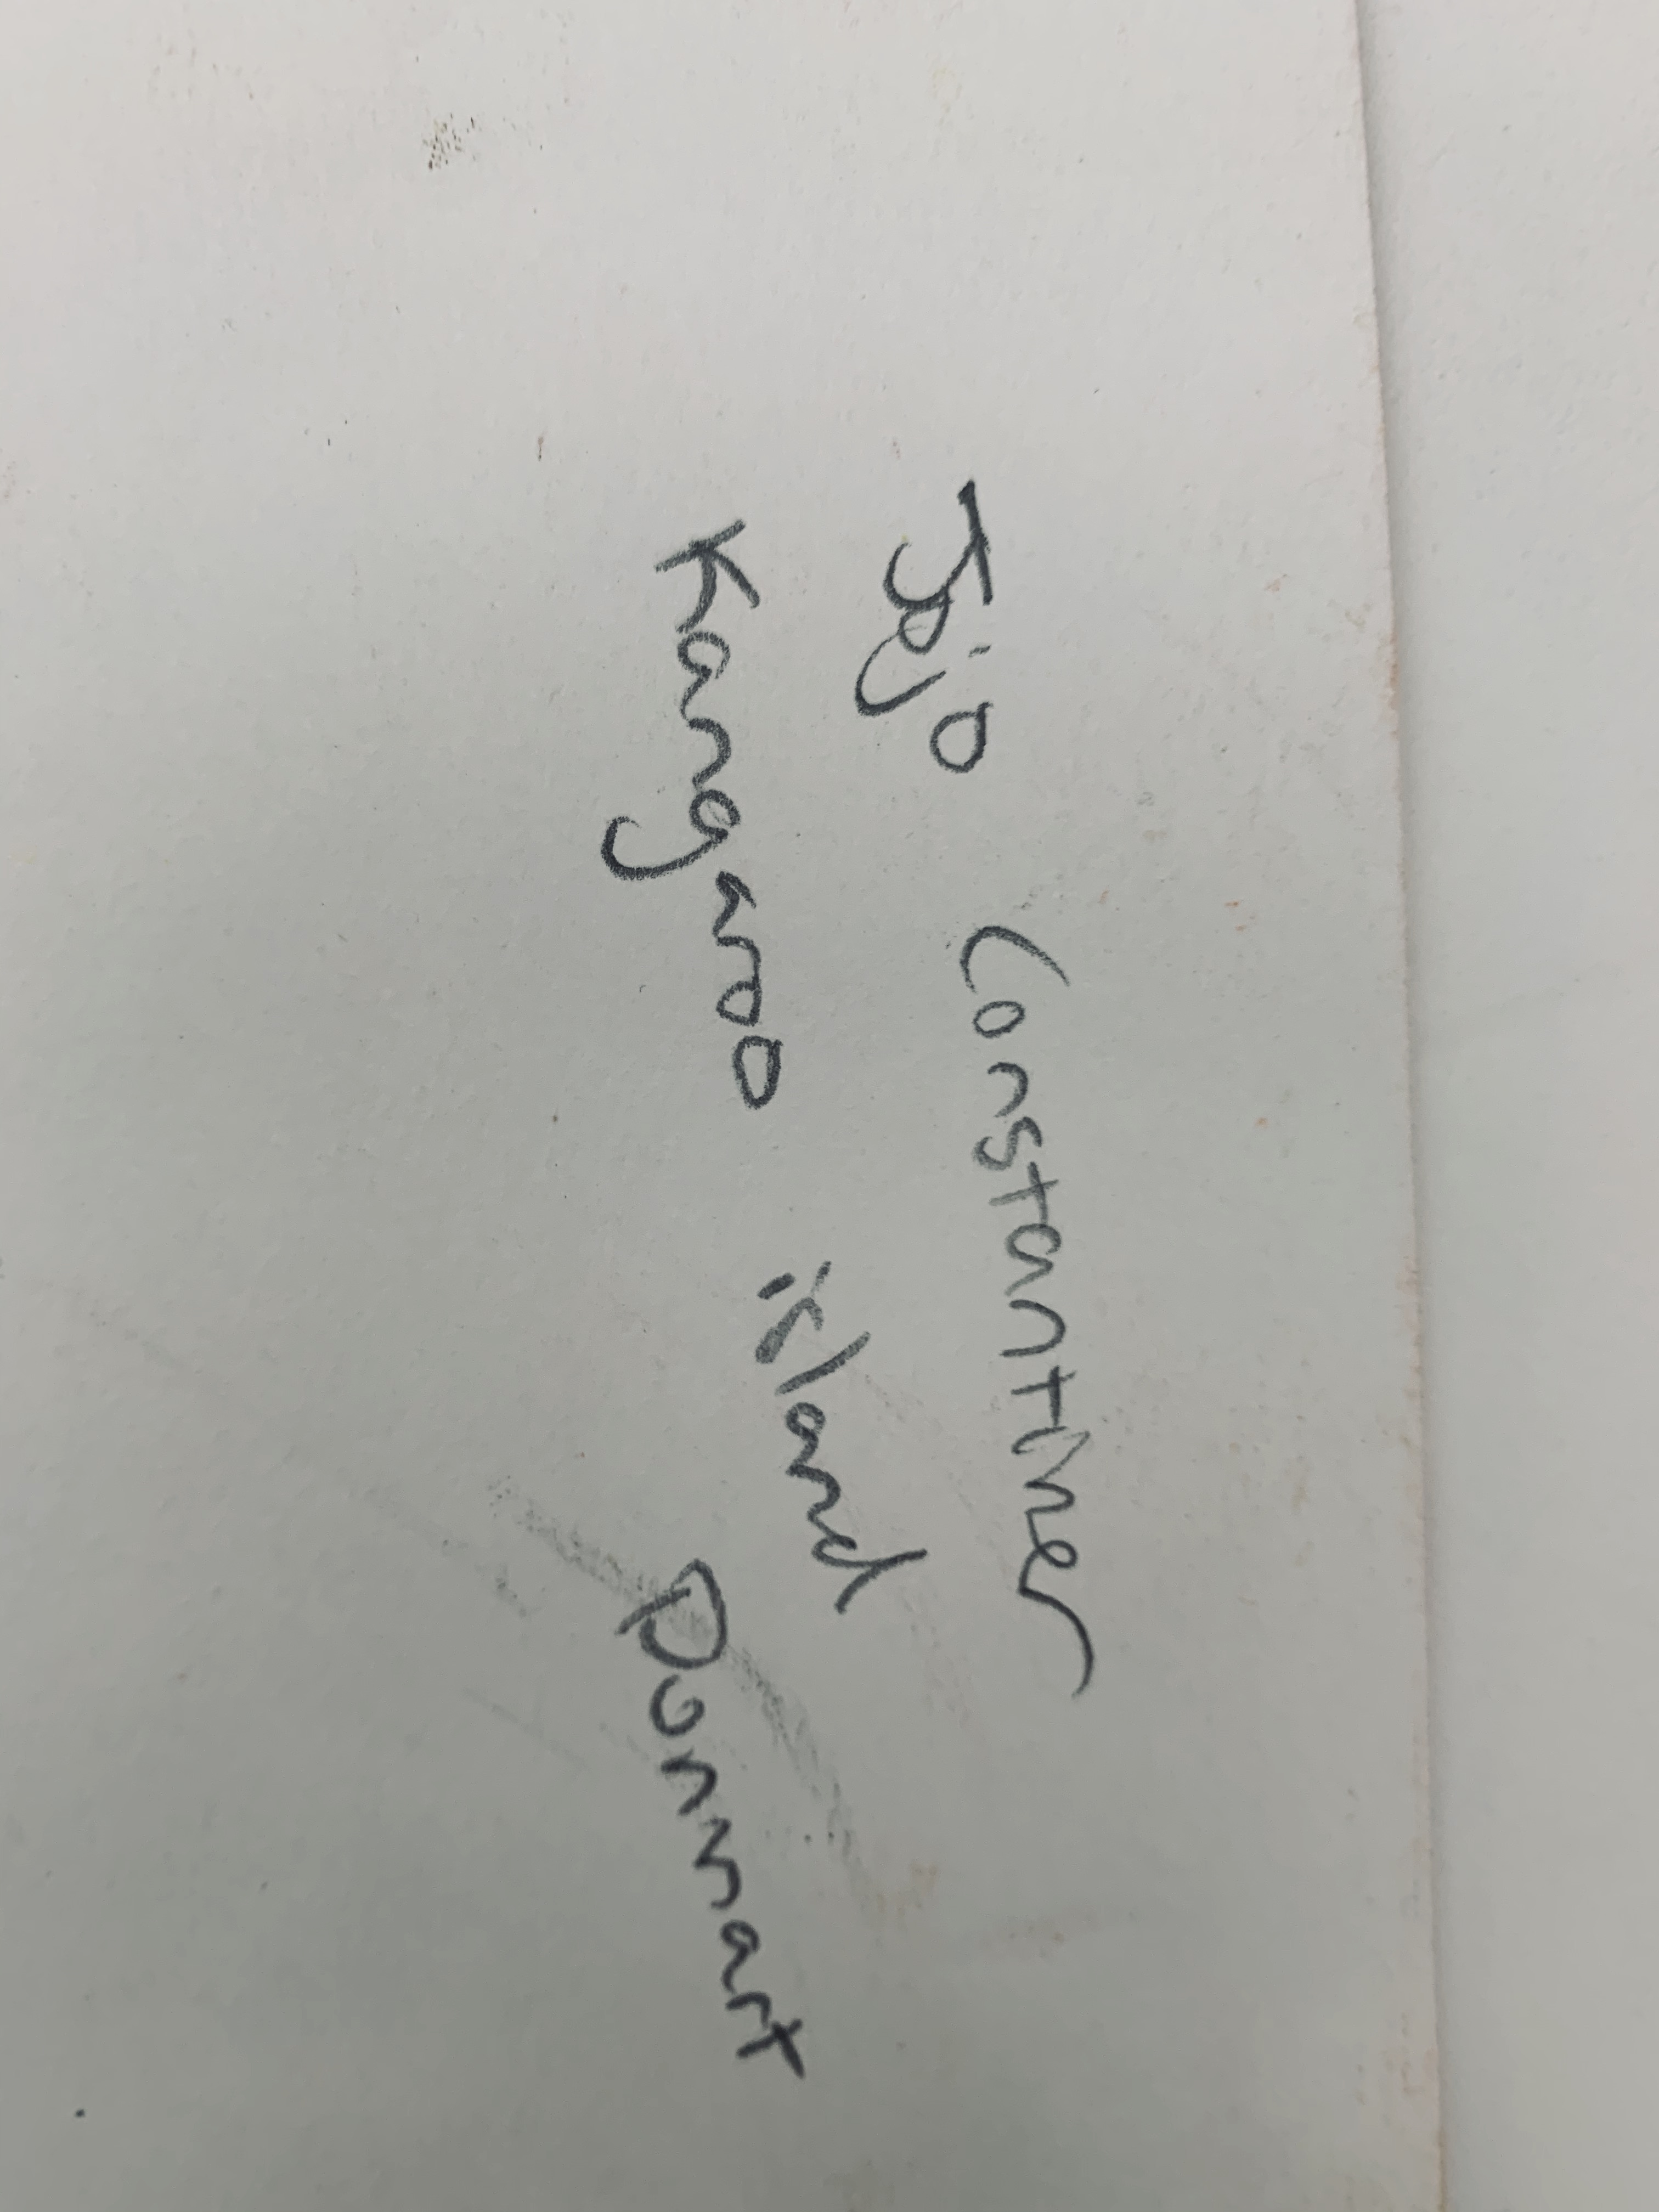 Jojo Constantine
Kangaroo island
Dunnart